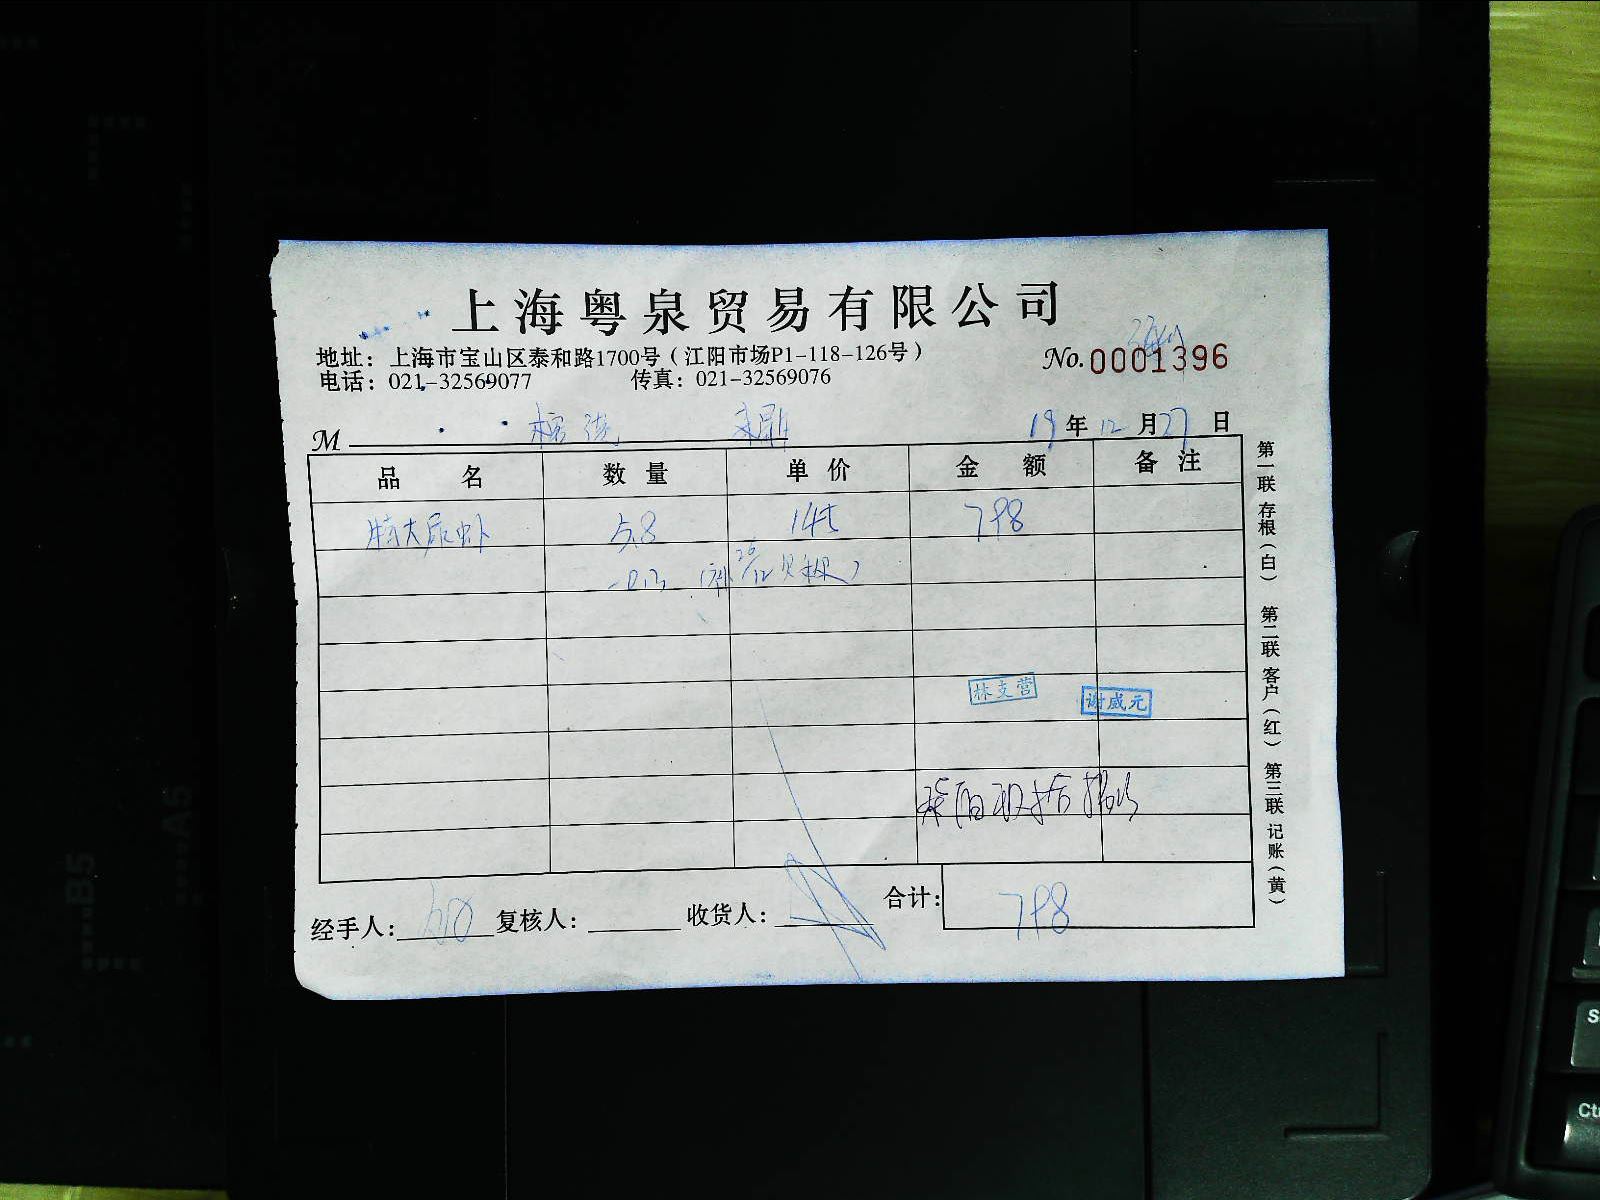 上海粤泉贸易有限公司
地址：上海市宝山区泰和路1700号（江阳市场P1-118-126号）
电话：021-32569077 传真：021-32569076
No. 0001396
M
19年12月27日
品名 数量 单价 金额 备注
特大尿虾 5.8 145 798
-0.3 26/12
林支营
谢威元
经手人： 复核人： 收货人： 合计： 798
第一联 存根（白） 第二联 客户（红） 第三联 记账（黄）
B5
A5